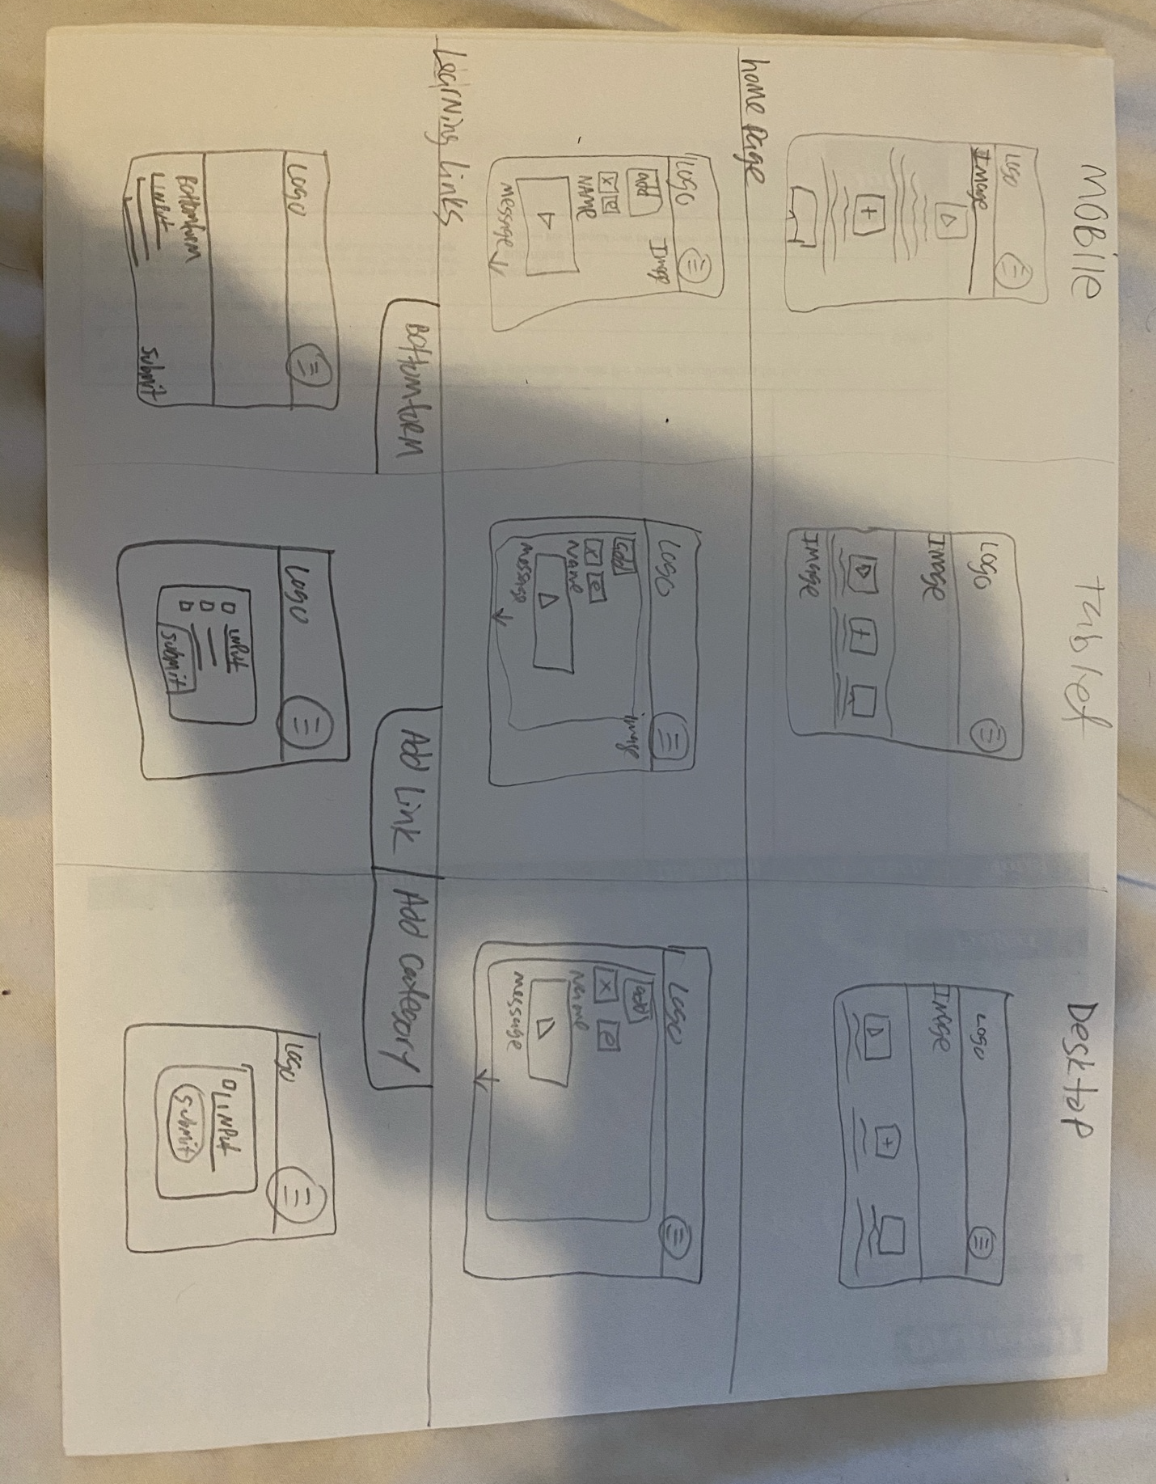 MOBile
tablet
Desktop
LOGO
IMage
LOGO
IMage
IMage
LOGO
IMage
home page
LOGO
Image
add
x e
NAME
message
LOGO
image
add
x e
Name
message
LOGO
add
x e
Name
message
Learning Links
Bottomform
Add Link
Add category
LOGO
Bottomform
input
submit
LOGO
input
submit
LOGO
input
submit